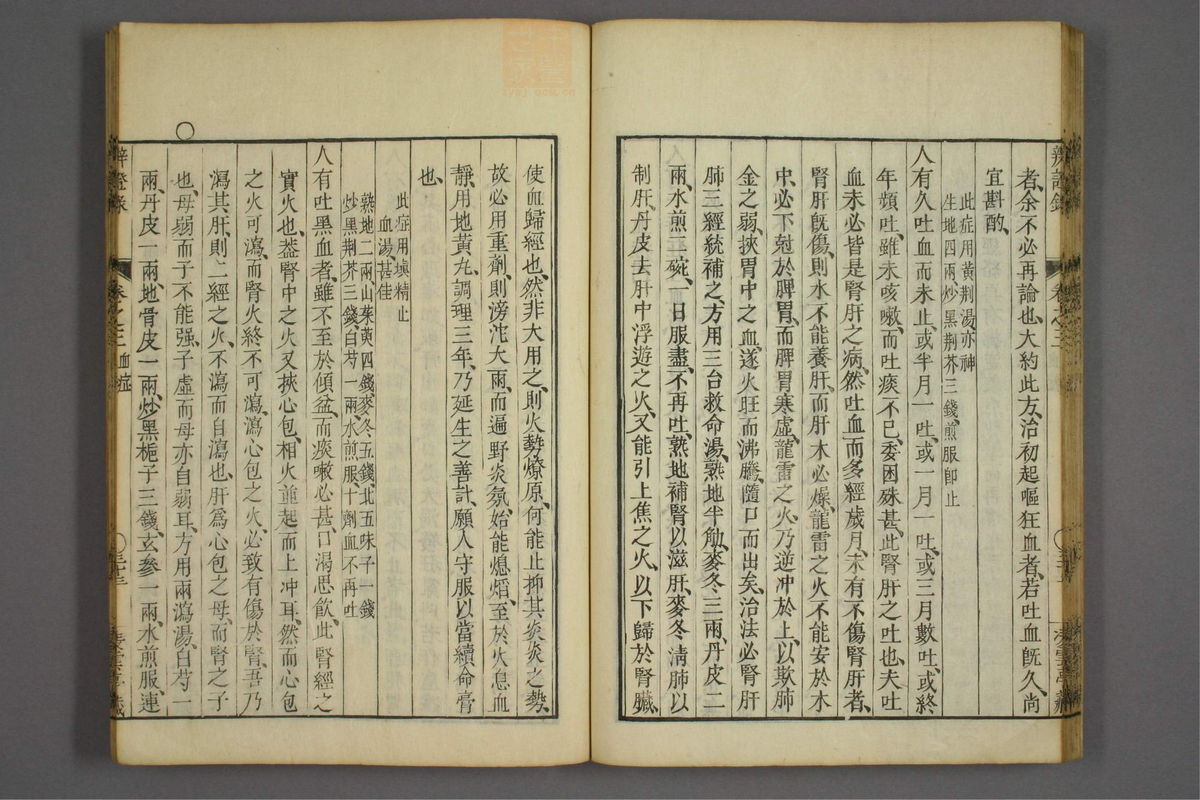 者、余不必再論也、大約此方、治初起嘔狂血者、若吐血旣久、尚
宜斟酌、
此症用黃荆湯亦神
生地四兩、炒黑荆芥三錢、煎服卽止
人有久吐血而未止、或半月一吐、或一月一吐、或三月數吐、或終
年頻吐、雖未咳嗽、而吐痰不已、委困殊甚、此腎肝之吐也、夫吐
血未必皆是腎肝之病、然吐血而多經歲月、未有不傷腎肝者、
腎肝旣傷、則水不能養肝、而肝木必燥、龍雷之火不能安於木
中、必下尅於脾胃、而脾胃寒虛、龍雷之火、乃逆冲於上、以欺肺
金之弱、挾胃中之血、遂火旺而沸騰、隨口而出矣、治法必腎肝
肺三經統補之、方用三台救命湯、熟地半觔、麥冬三兩、丹皮二
兩、水煎二碗、一日服盡、不再吐、熟地補腎以滋肝、麥冬淸肺以
制肝、丹皮去肝中浮遊之火、又能引上焦之火、以下歸於腎臟、
辨證錄 卷之三
使血歸經也、然非大用之、則火勢燎原、何能止抑其炎炎之勢、
故必用重劑、則滂沱大雨、而遍野炎氛、始能熄熖、至於火息血
靜、用地黃丸、調理三年、乃延生之善計、願人守服以當續命膏
也、
此症用塡精止
血湯、甚佳
熟地二兩、山茱萸四錢、麥冬五錢、北五味子一錢
炒黑荆芥三錢、白芍一兩、水煎服、十劑血不再吐
人有吐黑血者、雖不至於傾盆、而痰嗽必甚、口渴思飮、此腎經之
實火也、葢腎中之火、又挾心包相火並起而上冲耳、然而心包
之火可瀉、而腎火終不可瀉、瀉心包之火、必致有傷於腎、吾乃
瀉其肝、則二經之火、不瀉而自瀉也、肝爲心包之母、而腎之子
也、母弱而子不能强、子虛而母亦自弱耳、方用兩瀉湯、白芍一
兩、丹皮一兩、地骨皮一兩、炒黑梔子三錢、玄參一兩、水煎服、連
辨證錄 卷之三 血症